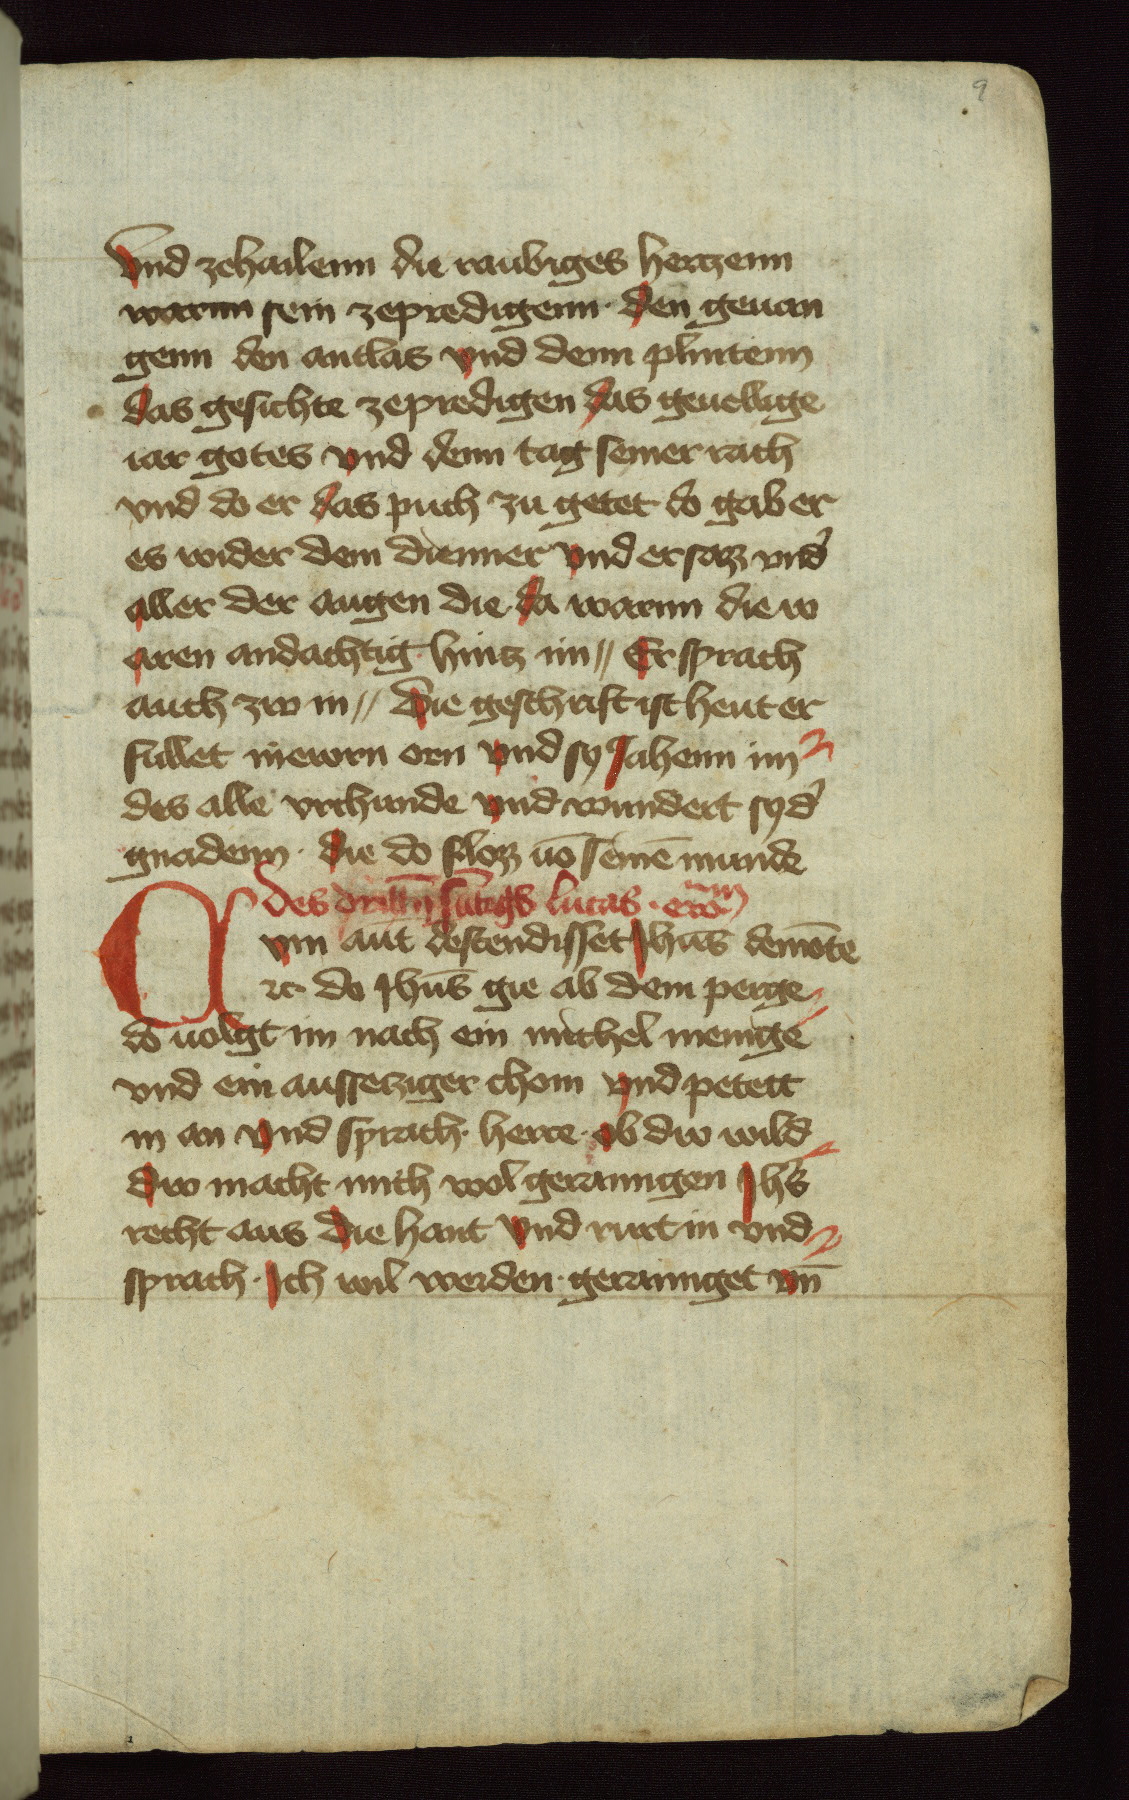 9
vnd zehailenn die raubiges hertzenn
warnn sein zepredigenn · den geuan
genn den antlas vnd denn plintenn
das gesichte zepredigen das geuellige
iar gotes vnd denn tag seiner rach
vnd do er das puch zu getet do gab er
es wider dem dienner vnd er satz vnd̕
aller der augen die da warnn die w
aren andachtig hintz im // Er sprach
auch zw in // Die geschrift ist heut er
fullet in ewrn orn vnd sy Jahenn im
des alle vrchunde vnd wundert sy d̕
gnadenn · die do flosz uō seinē munde
Des dritten sūtags lucas · ewā
Cvm aūt descendisset Jhūs demōte
⁊c do Jhūs gie ab dem perge
do uolgt im nach ein michel menige
vnd ein aussetziger chom vnd petett
in an vnd sprach · herre · ob dw wild
dw macht mich wol gerainigen Jhs̄
recht aus die hant vnd rurt in vnd
sprach · Ich wil werden · gerainiget vn̄